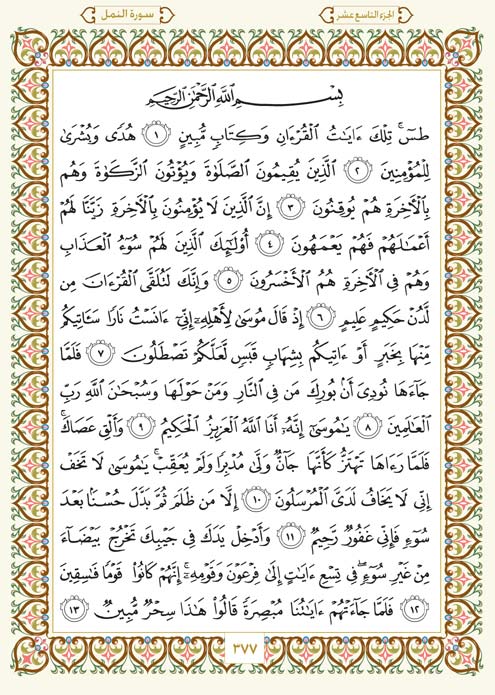 الجزء التاسع عشر
سورة النمل
بِسْمِ ٱللَّهِ ٱلرَّحْمَٰنِ ٱلرَّحِيمِ
طسٓۚ تِلْكَ ءَايَٰتُ ٱلْقُرْءَانِ وَكِتَابٖ مُّبِينٍ ١ هُدٗى وَبُشْرَىٰ
لِلْمُؤْمِنِينَ ٢ ٱلَّذِينَ يُقِيمُونَ ٱلصَّلَوٰةَ وَيُؤْتُونَ ٱلزَّكَوٰةَ وَهُم
بِٱلْأٓخِرَةِ هُمْ يُوقِنُونَ ٣ إِنَّ ٱلَّذِينَ لَا يُؤْمِنُونَ بِٱلْأٓخِرَةِ زَيَّنَّا لَهُمْ
أَعْمَٰلَهُمْ فَهُمْ يَعْمَهُونَ ٤ أُوْلَٰٓئِكَ ٱلَّذِينَ لَهُمْ سُوٓءُ ٱلْعَذَابِ
وَهُمْ فِي ٱلْأٓخِرَةِ هُمُ ٱلْأَخْسَرُونَ ٥ وَإِنَّكَ لَتُلَقَّى ٱلْقُرْءَانَ مِن
لَّدُنْ حَكِيمٍ عَلِيمٍ ٦ إِذْ قَالَ مُوسَىٰ لِأَهْلِهِۦٓ إِنِّيٓ ءَانَسْتُ نَارٗا سَـَٔاتِيكُم
مِّنْهَا بِخَبَرٍ أَوْ ءَاتِيكُم بِشِهَابٖ قَبَسٖ لَّعَلَّكُمْ تَصْطَلُونَ ٧ فَلَمَّا
جَآءَهَا نُودِيَ أَنۢ بُورِكَ مَن فِي ٱلنَّارِ وَمَنْ حَوْلَهَا وَسُبْحَٰنَ ٱللَّهِ رَبِّ
ٱلْعَٰلَمِينَ ٨ يَٰمُوسَىٰٓ إِنَّهُۥٓ أَنَا ٱللَّهُ ٱلْعَزِيزُ ٱلْحَكِيمُ ٩ وَأَلْقِ عَصَاكَۚ
فَلَمَّا رَءَاهَا تَهْتَزُّ كَأَنَّهَا جَآنّٞ وَلَّىٰ مُدْبِرٗا وَلَمْ يُعَقِّبْۚ يَٰمُوسَىٰ لَا تَخَفْ
إِنِّي لَا يَخَافُ لَدَيَّ ٱلْمُرْسَلُونَ ١٠ إِلَّا مَن ظَلَمَ ثُمَّ بَدَّلَ حُسْنَۢا بَعْدَ
سُوٓءٖ فَإِنِّي غَفُورٞ رَّحِيمٞ ١١ وَأَدْخِلْ يَدَكَ فِي جَيْبِكَ تَخْرُجْ بَيْضَآءَ
مِنْ غَيْرِ سُوٓءٖۖ فِي تِسْعِ ءَايَٰتٍ إِلَىٰ فِرْعَوْنَ وَقَوْمِهِۦٓۚ إِنَّهُمْ كَانُواْ قَوْمٗا فَٰسِقِينَ
١٢ فَلَمَّا جَآءَتْهُمْ ءَايَٰتُنَا مُبْصِرَةٗ قَالُواْ هَٰذَا سِحْرٞ مُّبِينٞ ١٣
٣٧٧